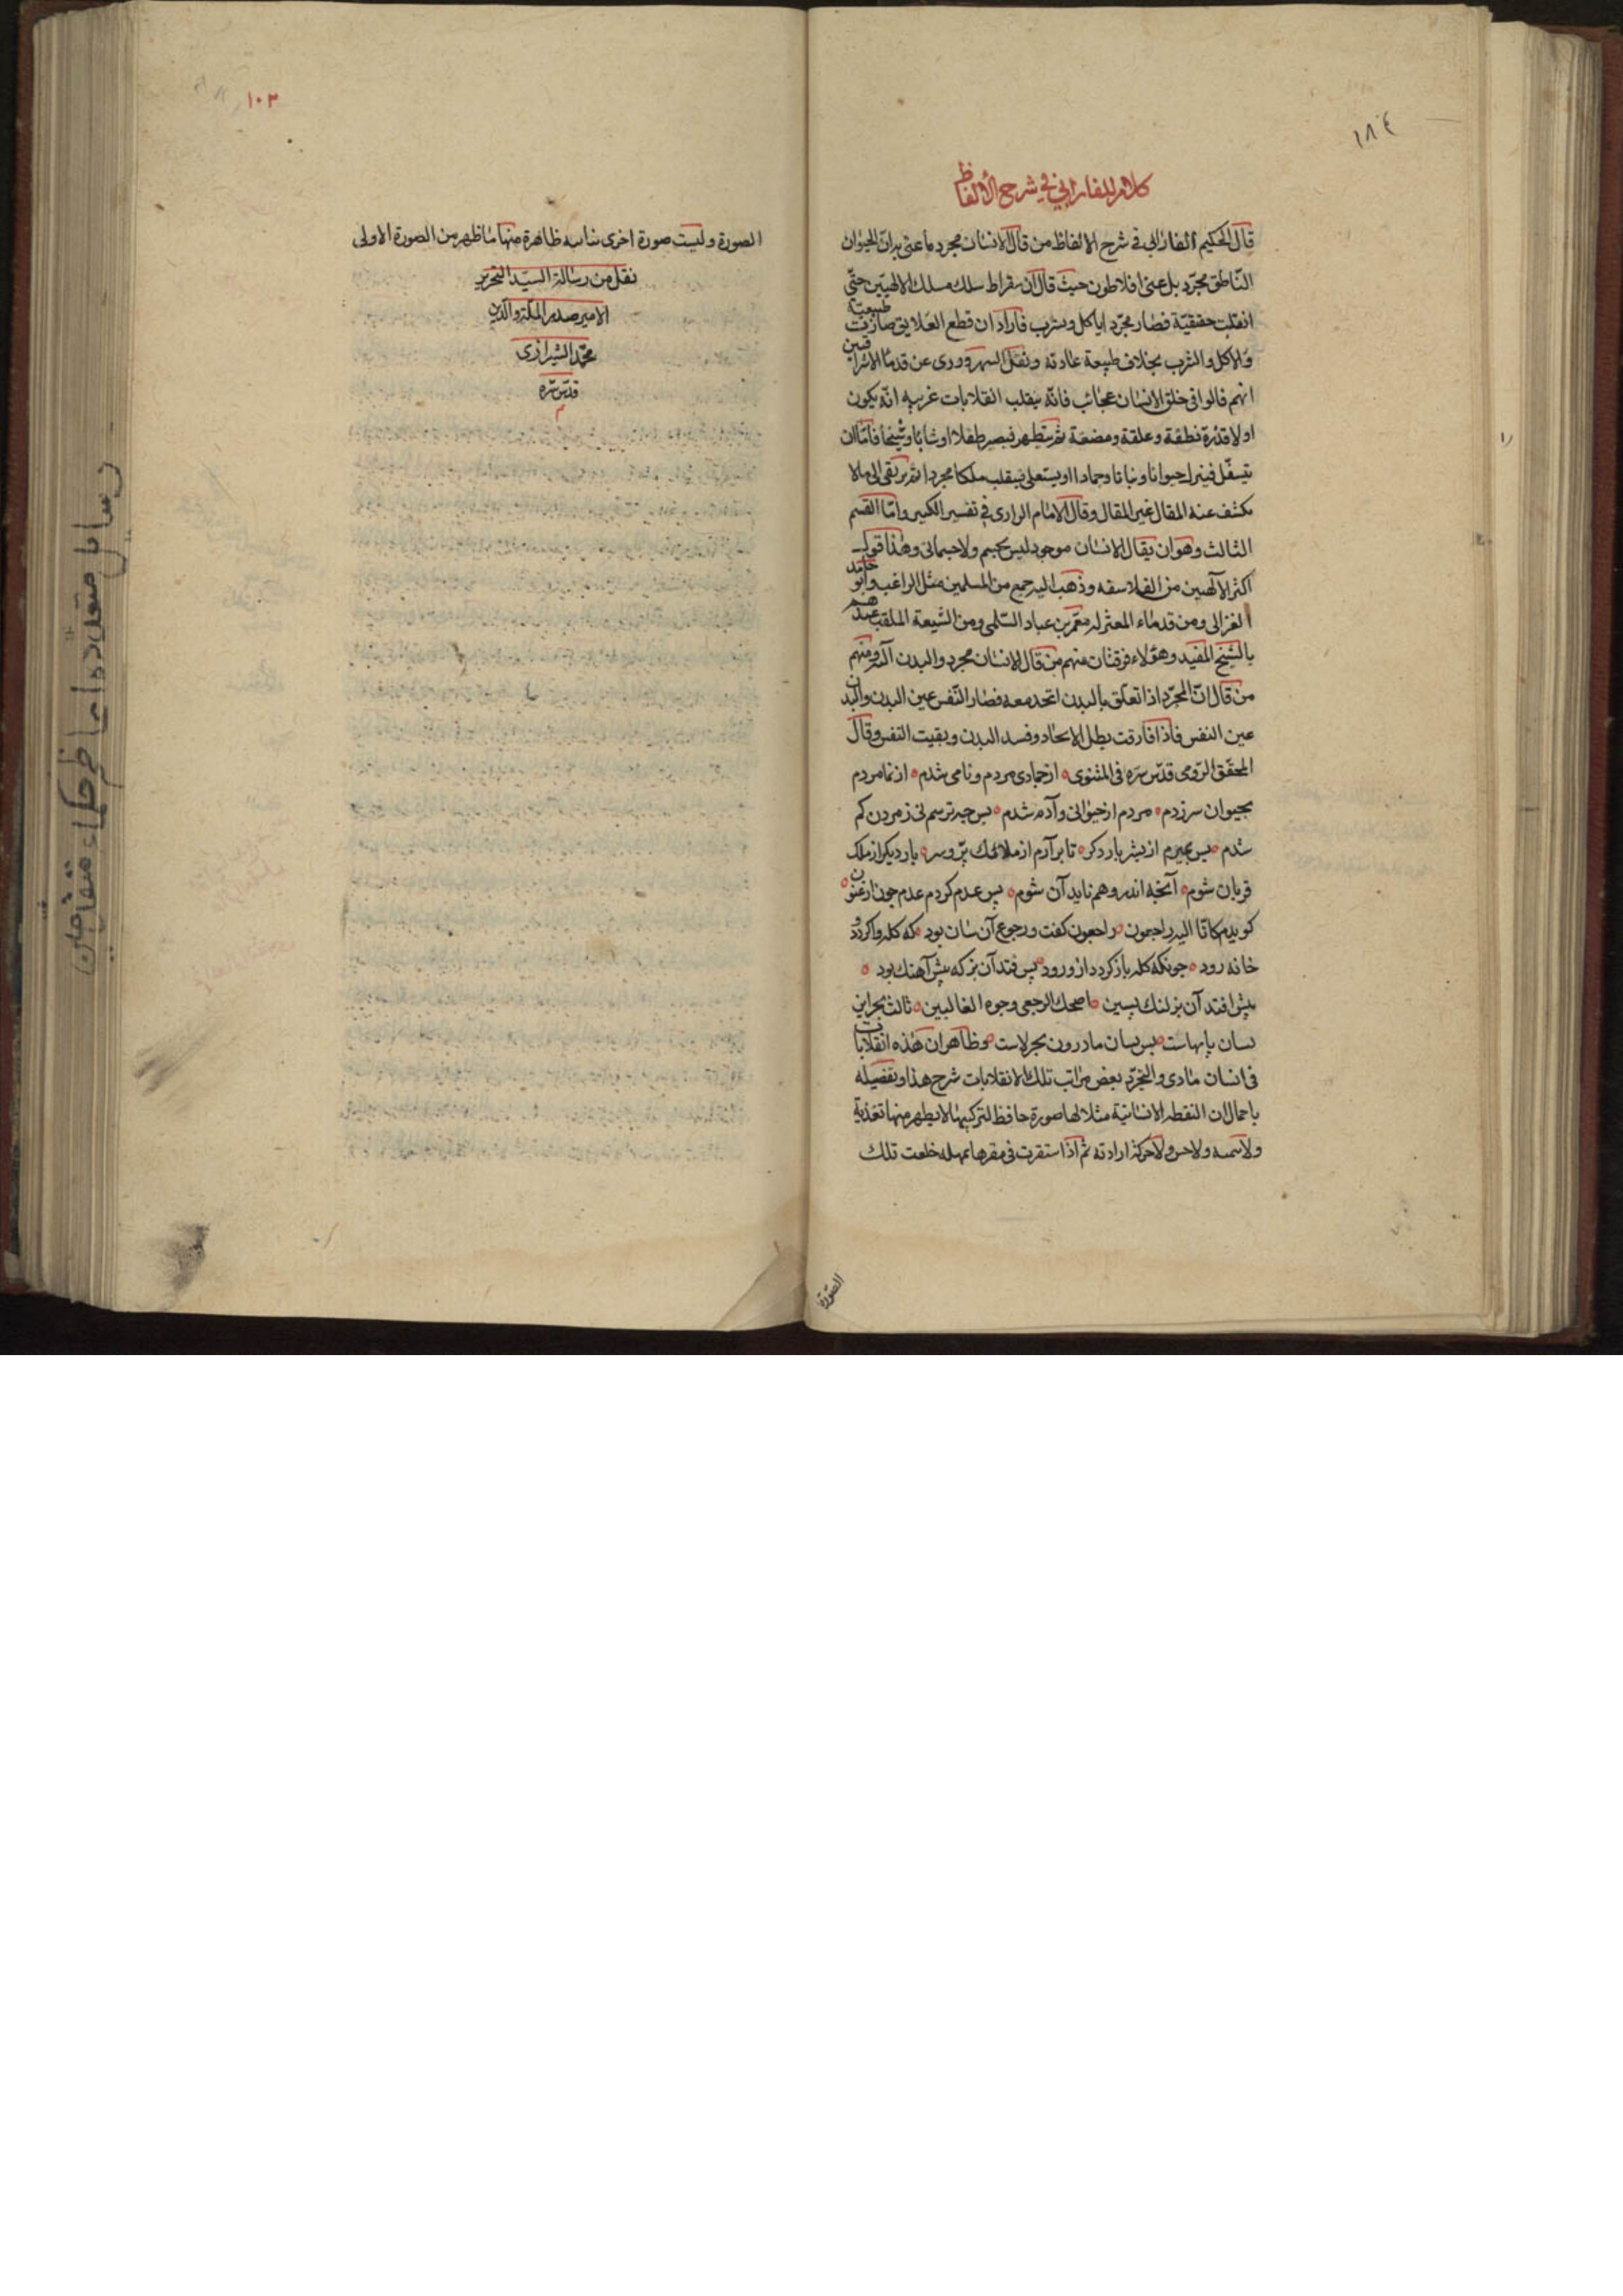 ١٨٤
كلام للفارابي في شرح الألفاظ
قال الحكيم الفارابى فى شرح الالفاظ من قال الانسان مجرد ما عنى به ان الحيوان
الناطق مجرّد بل عنى افلاطون حيث قال ان سقراط سلك مسلك الالهيّين حتّى
انقلبت حقيقيّة فصار مجرّدا ياكل ويشرب فاراد ان قطع العلايق صارت طبيعيّة
والاكل والشرب بخلاف طبيعة عادته ونقل السهروردى عن قدماء الاشراقيين
انهم قالوا فى خلق الانسان عجائب فانّه ينقلب انقلابات غريبه انّه يكون
اولا قذرة نطفة وعلقة ومضغة ثم يتطهر فيصير طفلا او شابا وشيخا فامّا ان
يتسفّل فينزل حيوانا ونباتا وجمادا او يستعلى فينقلب ملكا مجردا ثم يرتقى الى مالا
يكشف عنه المقال غير المقال وقال الامام الرازى فى تفسير الكبير وامّا القسم
الثالث وهو ان يقال الانسان موجود ليس بجسم ولا جسمانى وهذا قول
اكثر الآلهيين من الفلاسفه وذهب اليه جمع من المسلمين مثل الراغب وابو حامد
الغزالى ومن قدماء المعتزله معمّر بن عباد السّلمى ومن الشيعة الملقب عندهم
بالشيخ المفيد وهؤلاء فرقتان منهم من قال الانسان مجرد والبدن آلته ومنهم
من قال انّ المجرّد اذا تعلّق بالبدن اتحد معه فصار النّفس عين البدن والبدن
عين النفس فاذا فارقت بطل الاتحاد وفسد البدن وبقيت النفس وقال
المحقّق الرّومى قدّس سرّه فى المثنوى از جمادى مردم و نامى شدم از نما مردم
بحيوان سرزدم مردم از حيوانى و آدم شدم پس چه ترسم كى ز مردن كم
شدم پس بميرم از بشر بار دكر تا برآرم از ملائك پرّ وسر بار ديكر از ملك
قربان شوم آنچه اندر وهم نايد آن شوم پس عدم كردم عدم چون ارغنون
كويدم كانّا اليه راجعون راجعون كفت و رجوع آن سان بود كه كله وا كردد و
خانه رود چونكه كله باز كردد از ورود پس فتد آن بز كه پيش آهنك بود
پيش افتد آن بز لنك پسين اضحك الرجعى وجوه الغالبين
فى انسان مادى والتجرّد بعض مراتب تلك الانقلابات شرح هذا وتفصيله
باجمال ان النقطه الانسانية مثلا لها صورة حافظ لتركيبها لا يظهر منها تغذية
ولا تنميه ولا حس ولا حركة ارادته ثم اذا استقرت فى مقرها بمهله خلعت تلك
الصّورة
١٠٣
الصورة ولبست صورة اخرى مناسبه ظاهرة منها ما ظهر من الصورة الاولى
نقل من رسالة السيّد النحرير
الامير صدر الملّة والدّين
محمّد الشيرازى
قدّس سرّه
م
رسايل متعدده از حكماء متفاجين